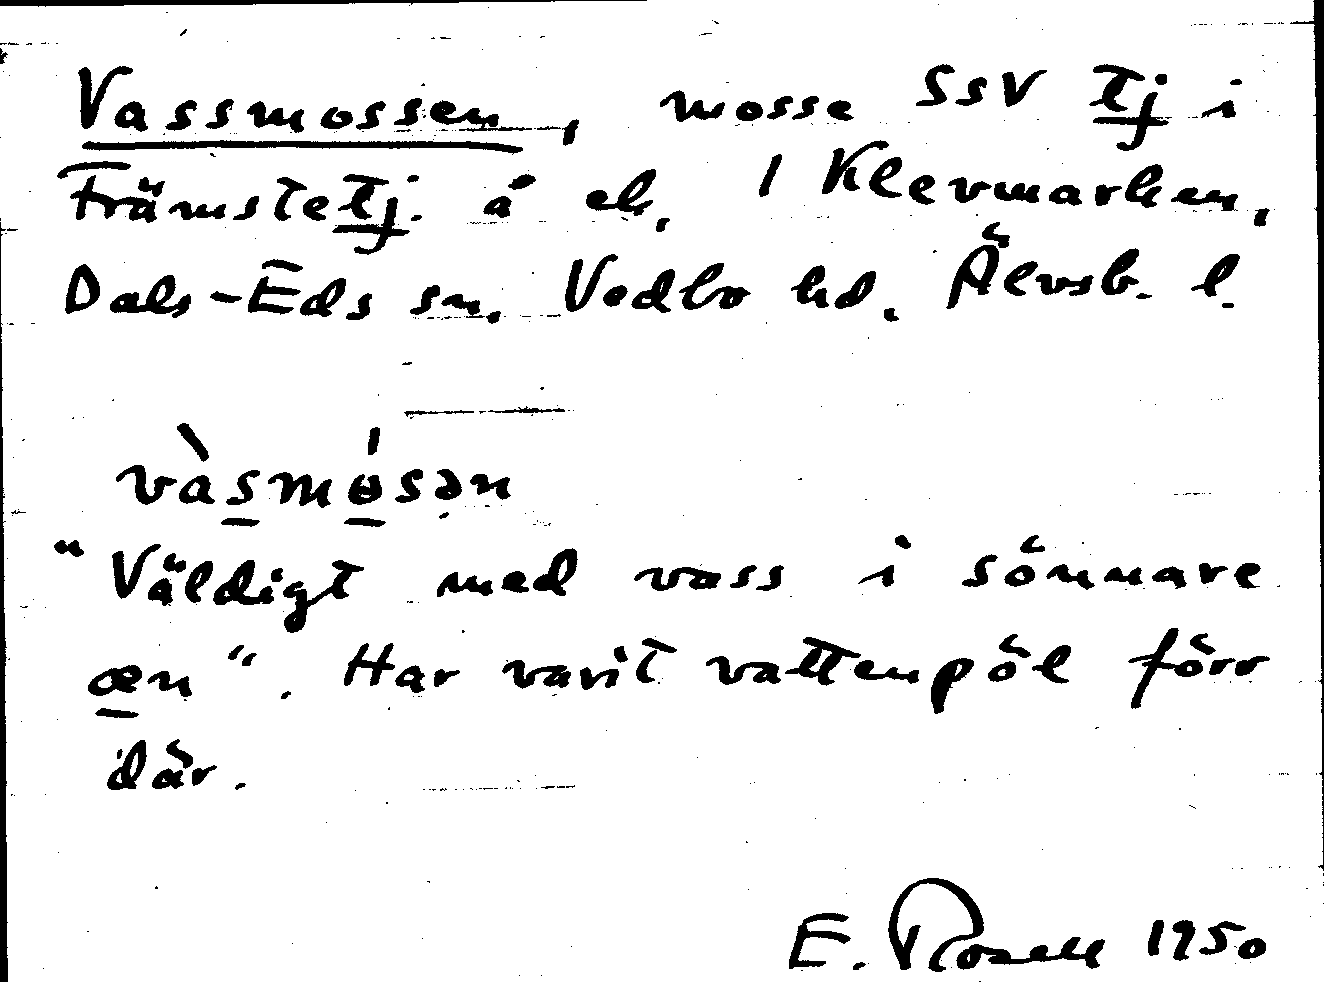 Vassmossen, mosse SSV tj i
Främstetj. å ek. 1 Klevmarken,
Dals-Eds sn. Vedbo hd. Älvsb. l.
vàsmósən
"Väldigt med vass i sönnare
æn". Har varit vattenpöl förr
där.
E. Rosell 1950